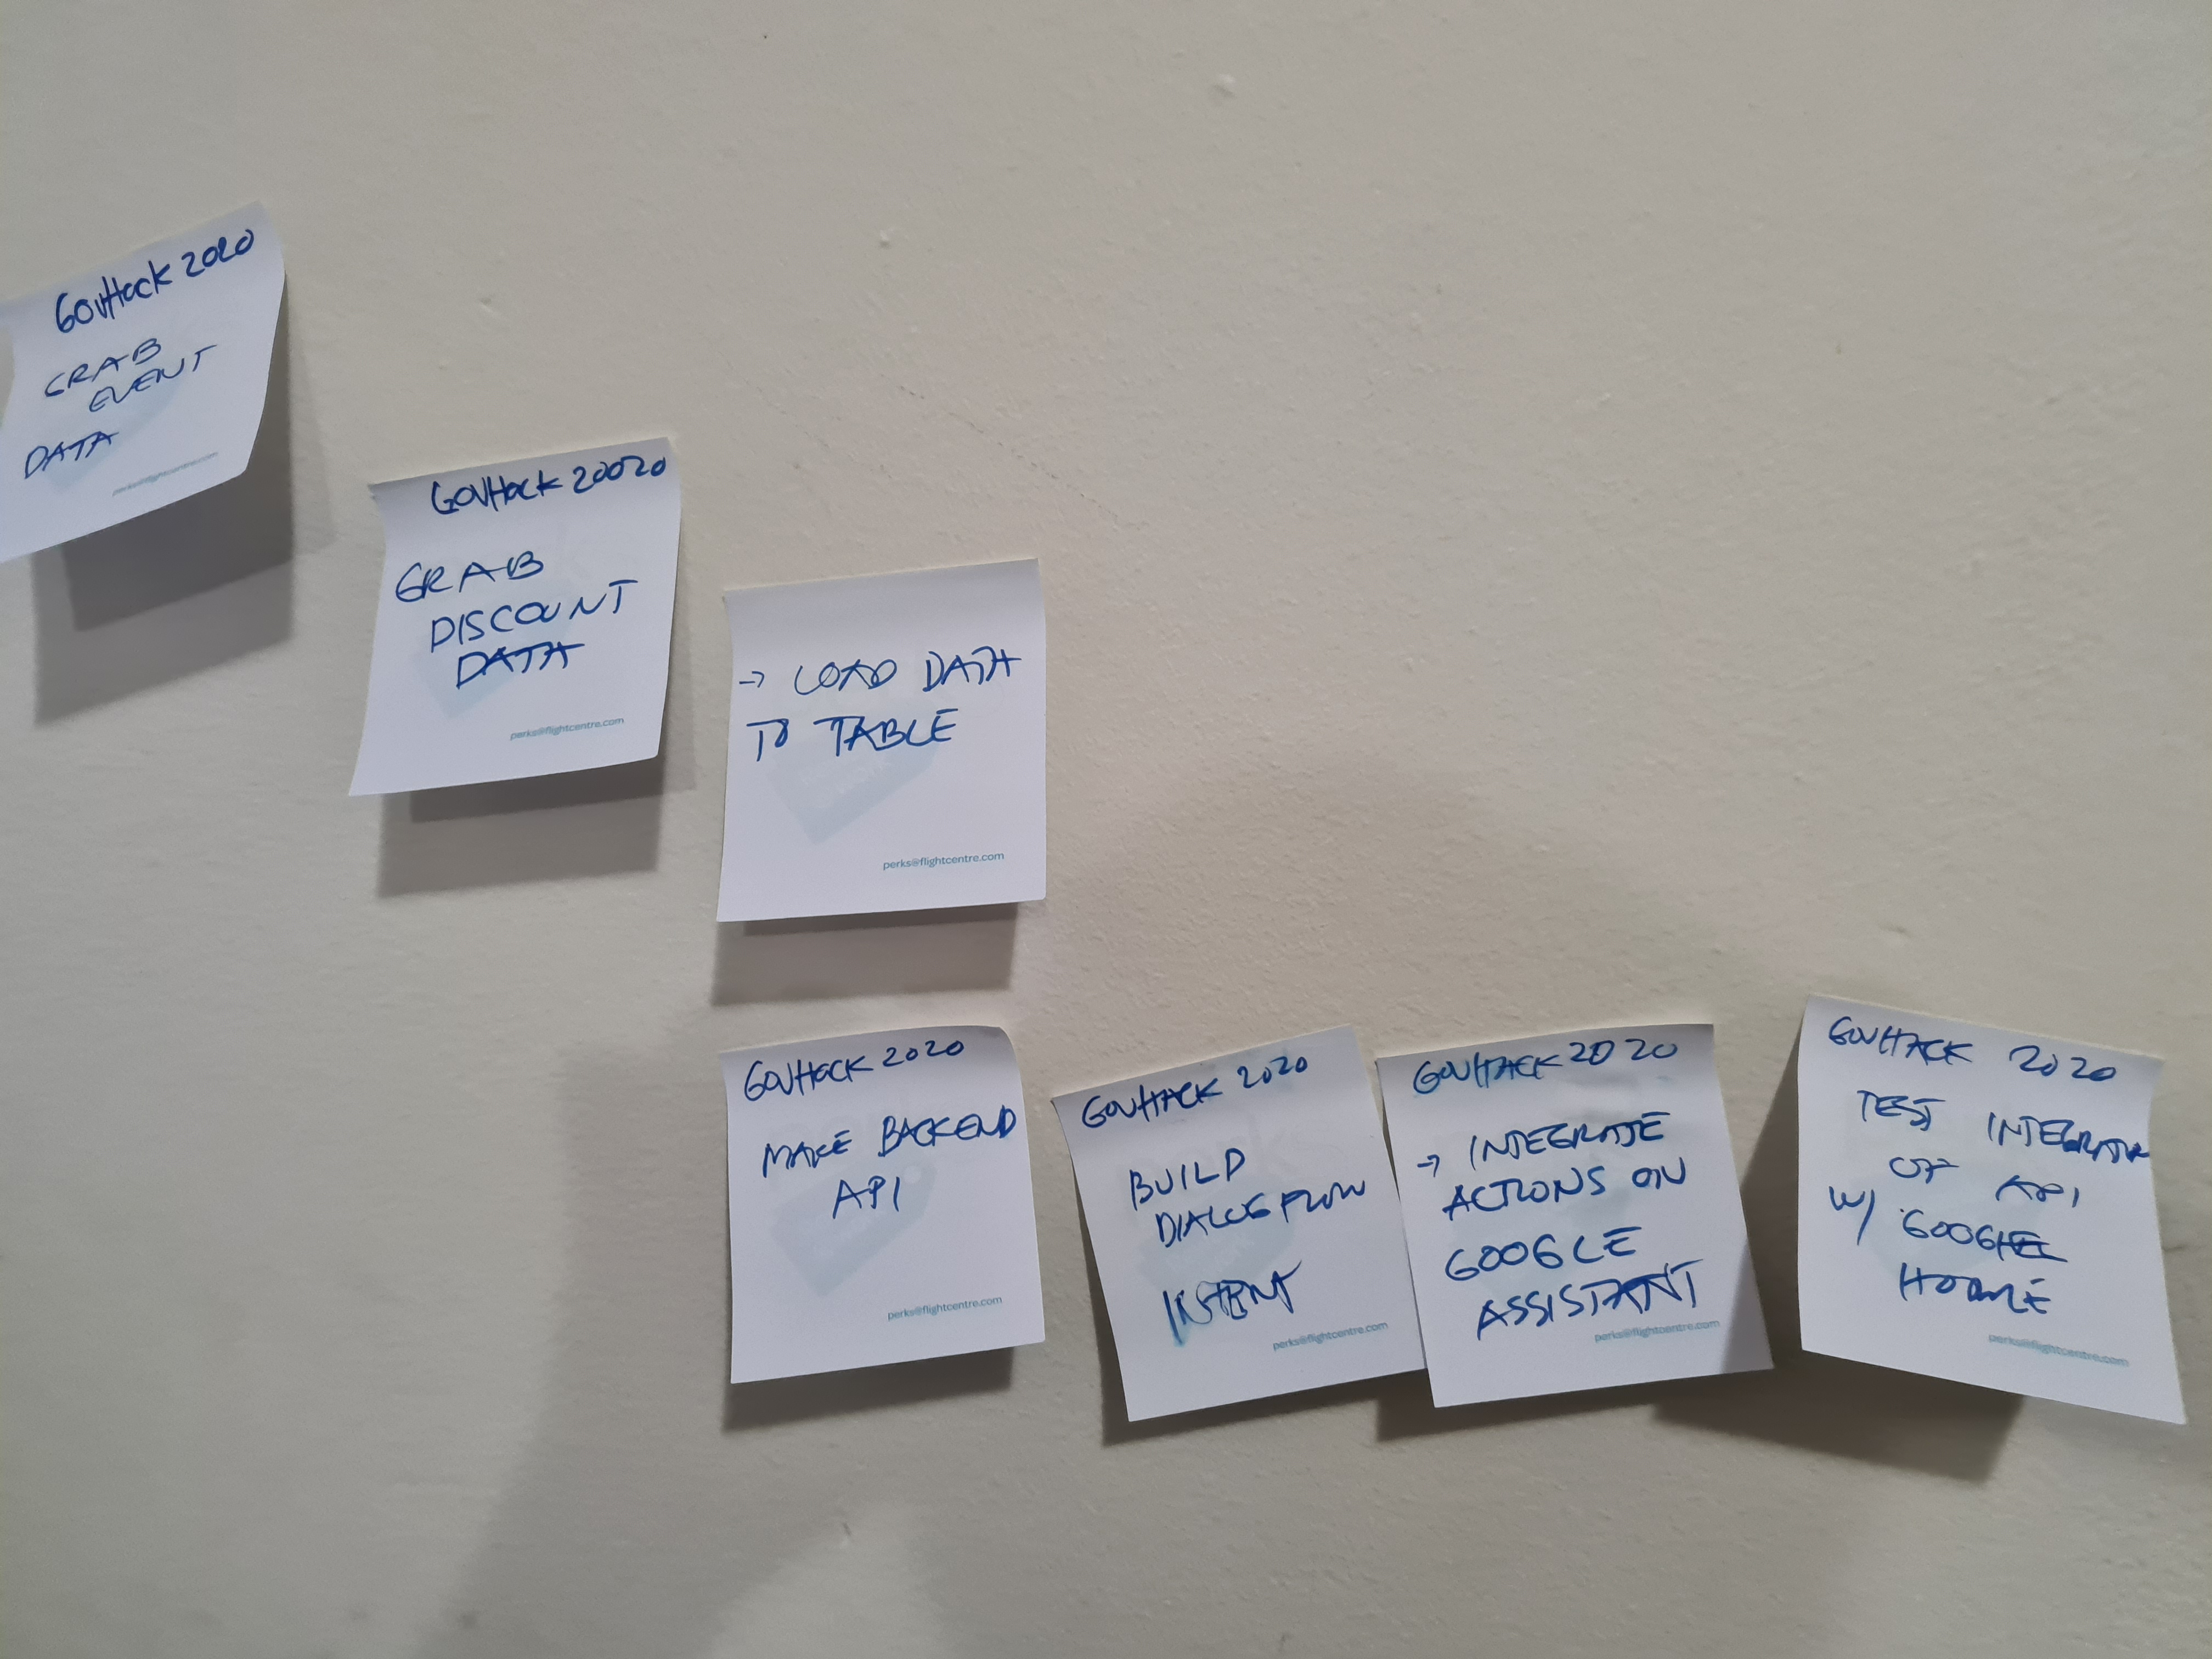 GovHack 2020
GRAB
EVENT
DATA
perks@flightcentre.com
GOVHack 20020
GRAB
DISCOUNT
DATA
perks@flightcentre.com
→ LOAD DATA
TO TABLE
perks@flightcentre.com
GOVHACK 2020
MAKE BACKEND
API
perks@flightcentre.com
GOVHACK 2020
BUILD
DIALOGFLOW
INTENT
perks@flightcentre.com
GOVHACK 2020
→ INTEGRATE
ACTIONS ON
GOOGLE
ASSISTANT
perks@flightcentre.com
GOVHACK 2020
TEST INTEGRATION
OF API
W/ GOOGLE
HOME
perks@flightcentre.com